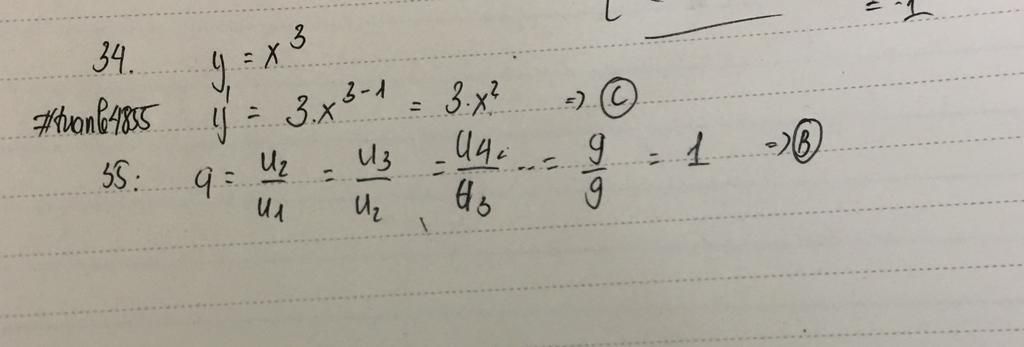 = -1
34. y = x^3
#tuanle4855 y' = 3.x^{3-1} = 3.x^2 => C
35: q = u_2/u_1 = u_3/u_2 = u_4/u_3 ... = 9/9 = 1 => B